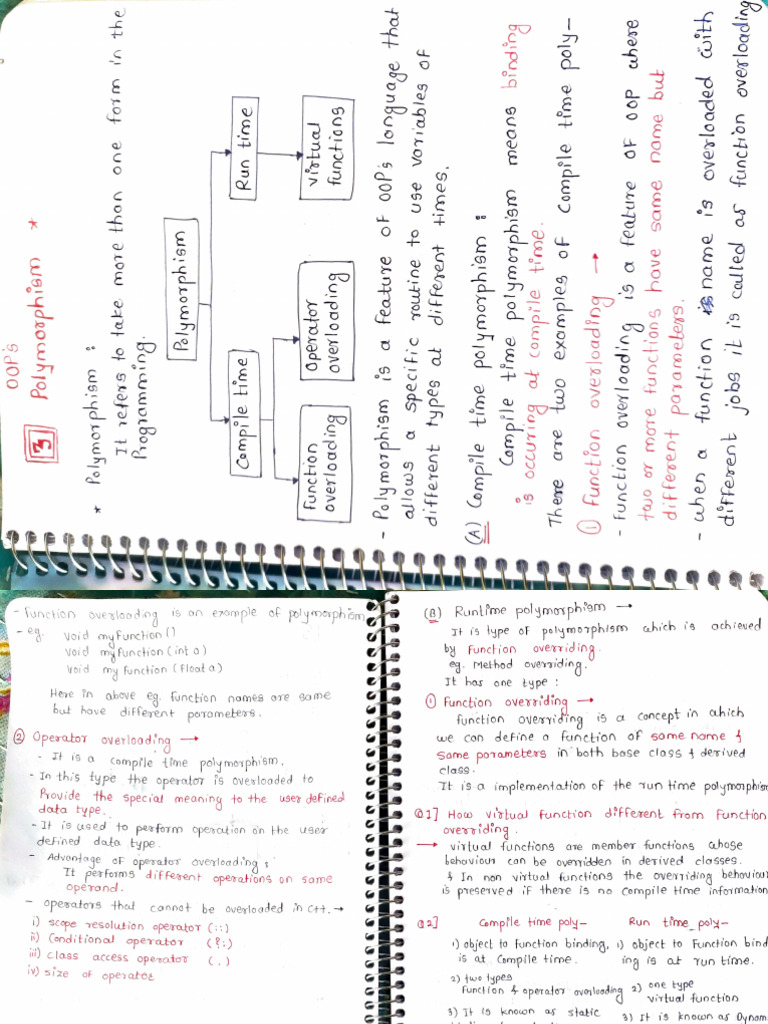 OOP's
3 Polymorphism *
* Polymorphism :
It refers to take more than one form in the
Programming.
Polymorphism
Compile time
Run time
Function
overloading
Operator
overloading
virtual
functions
- Polymorphism is a feature of OOP's language that
allows a specific routine to use variables of
different types at different times.
(A) Compile time polymorphism :
Compile time polymorphism means binding
is occuring at compile time.
There are two examples of compile time poly-
① Function overloading →
- Function overloading is a feature of OOP where
two or more functions have same name but
different parameters.
- when a function name is overloaded with
different jobs it is called as function overloading
- Function overloading is an example of polymorphism
- eg. void myfunction ()
void myfunction (int a)
void myfunction (float a)
Here in above eg. function names are same
but have different parameters.
② Operator overloading →
- It is a compile time polymorphism.
- In this type the operator is overloaded to
Provide the special meaning to the user defined
data type.
- It is used to perform operation on the user
defined data type.
- Advantage of operator overloading :
It performs different operations on same
operand.
- operators that cannot be overloaded in C++. →
i) scope resolution operator (::)
ii) Conditional operator (?:)
iii) class access operator (.)
iv) size of operator
(B) Runtime polymorphism →
It is type of polymorphism which is achieved
by function overriding.
eg. Method overriding.
It has one type :
① Function overriding →
function overriding is a concept in which
we can define a function of same name &
same parameters in both base class & derived
class.
It is a implementation of the run time polymorphism
Q1] How virtual function different from Function
overriding.
→ virtual functions are member functions whose
behaviour can be overridden in derived classes.
& In non virtual functions the overriding behaviour
is preserved if there is no compile time information
Q2] Compile time poly- Run time poly-
1) object to function binding, 1) object to Function bind
is at compile time. ing is at run time.
2) two types
function & operator overloading 2) one type
virtual function
3) It is known as static 3) It is known as Dynam